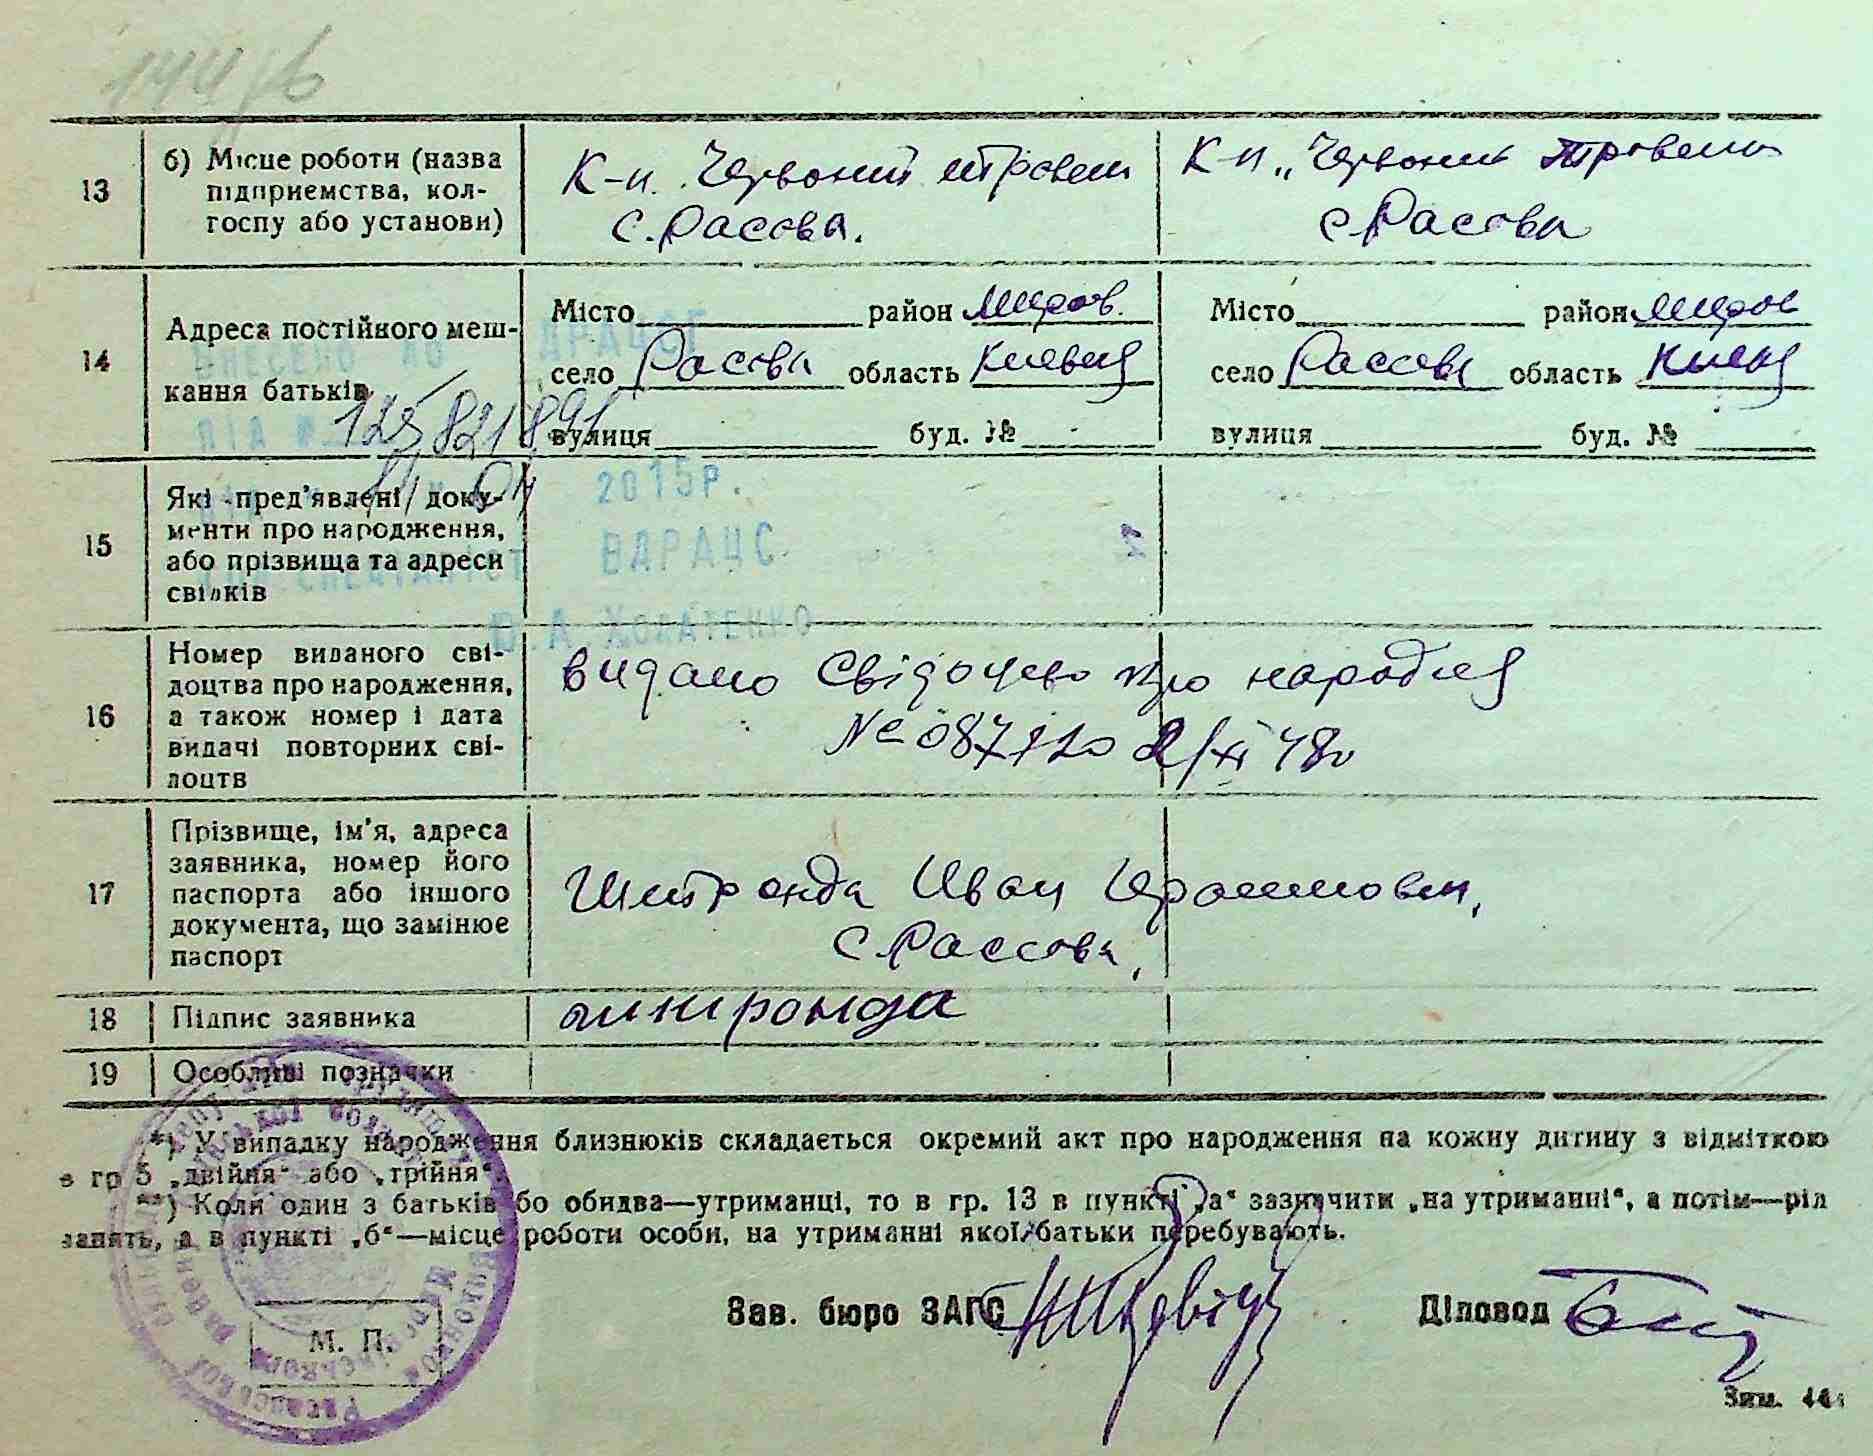 13
б) Місце роботи (назва
підприємства, кол-
госпу або установи)
К-п. Червоний
с. Расова.
К-п „Червоний
с Расова
14
Адреса постійного меш-
кання батьків
Місто район Миров.
село Расова область Киевская
вулиця буд. №
Місто район Миров
село Рассова область
вулиця буд. №
125/821891
2015р.
ВДРАЦС
15
Які пред'явлені доку-
менти про народження,
або прізвища та адреси
свідків
16
Номер виданого сві-
доцтва про народження,
а також номер і дата
видачі повторних сві-
доцтв
видано Свідоцтво про народження
17
Прізвище, ім'я, адреса
заявника, номер його
паспорта або іншого
документа, що замінює
паспорт
Иван
с. Рассова,
18
Підпис заявника
19
Особливі позначки
*) У випадку народження близнюків складається окремий акт про народження на кожну дитину з відміткою
в гр 5 „двійня“ або „трійня“.
**) Коли один з батьків або обидва—утриманці, то в гр. 13 в пункті „а“ зазначити „на утриманні“, а потім—рід
занять, а в пункті „б“—місце роботи особи, на утриманні якої батьки перебувають.
Зав. бюро ЗАГС
Діловод
М. П.
Зам.